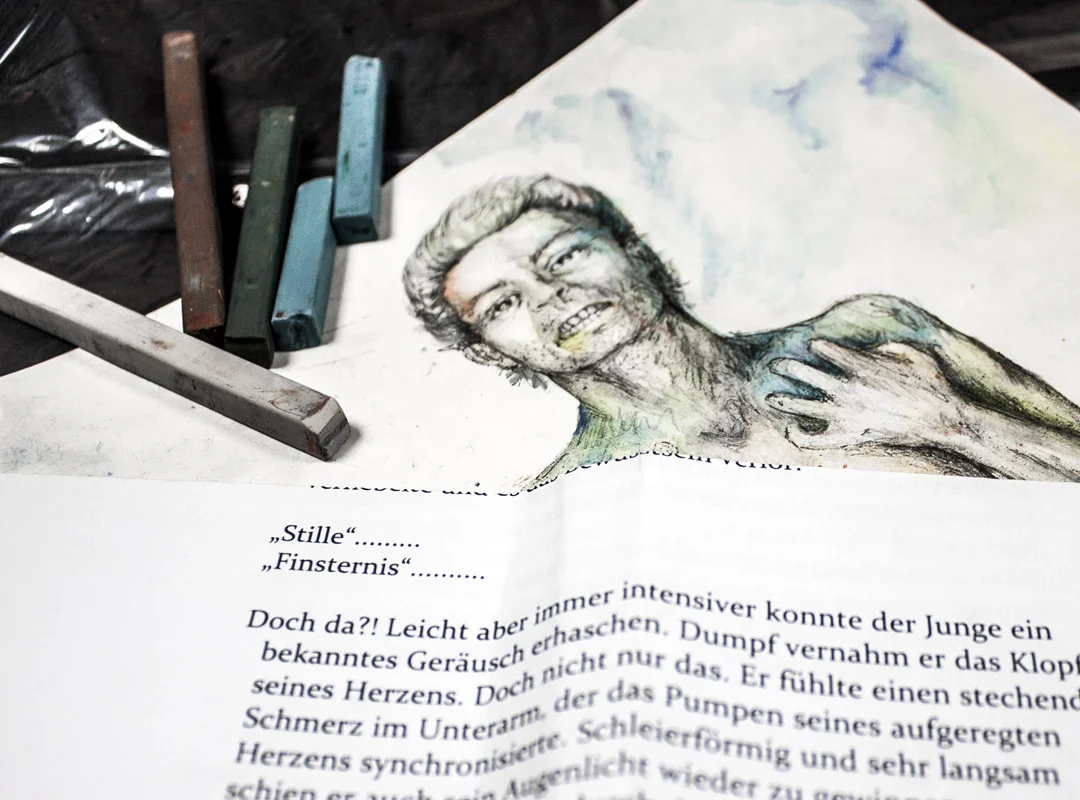 und es bewusstsein verlor.
„Stille“.........
„Finsternis“..........
Doch da?! Leicht aber immer intensiver konnte der Junge ein
bekanntes Geräusch erhaschen. Dumpf vernahm er das Klopf
seines Herzens. Doch nicht nur das. Er fühlte einen stechend
Schmerz im Unterarm, der das Pumpen seines aufgeregten
Herzens synchronisierte. Schleierförmig und sehr langsam
schien er auch sein Augenlicht wieder zu